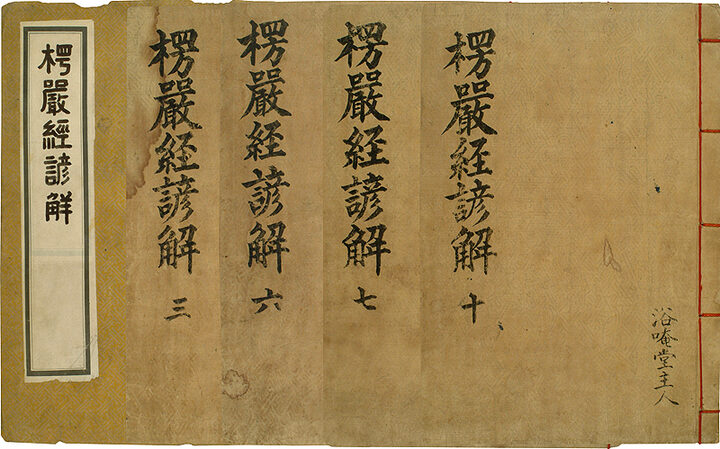 楞嚴經諺觧
楞嚴経諺觧 三
楞嚴経諺觧 六
楞嚴経諺觧 七
楞嚴経諺觧 十
浴唵堂主人